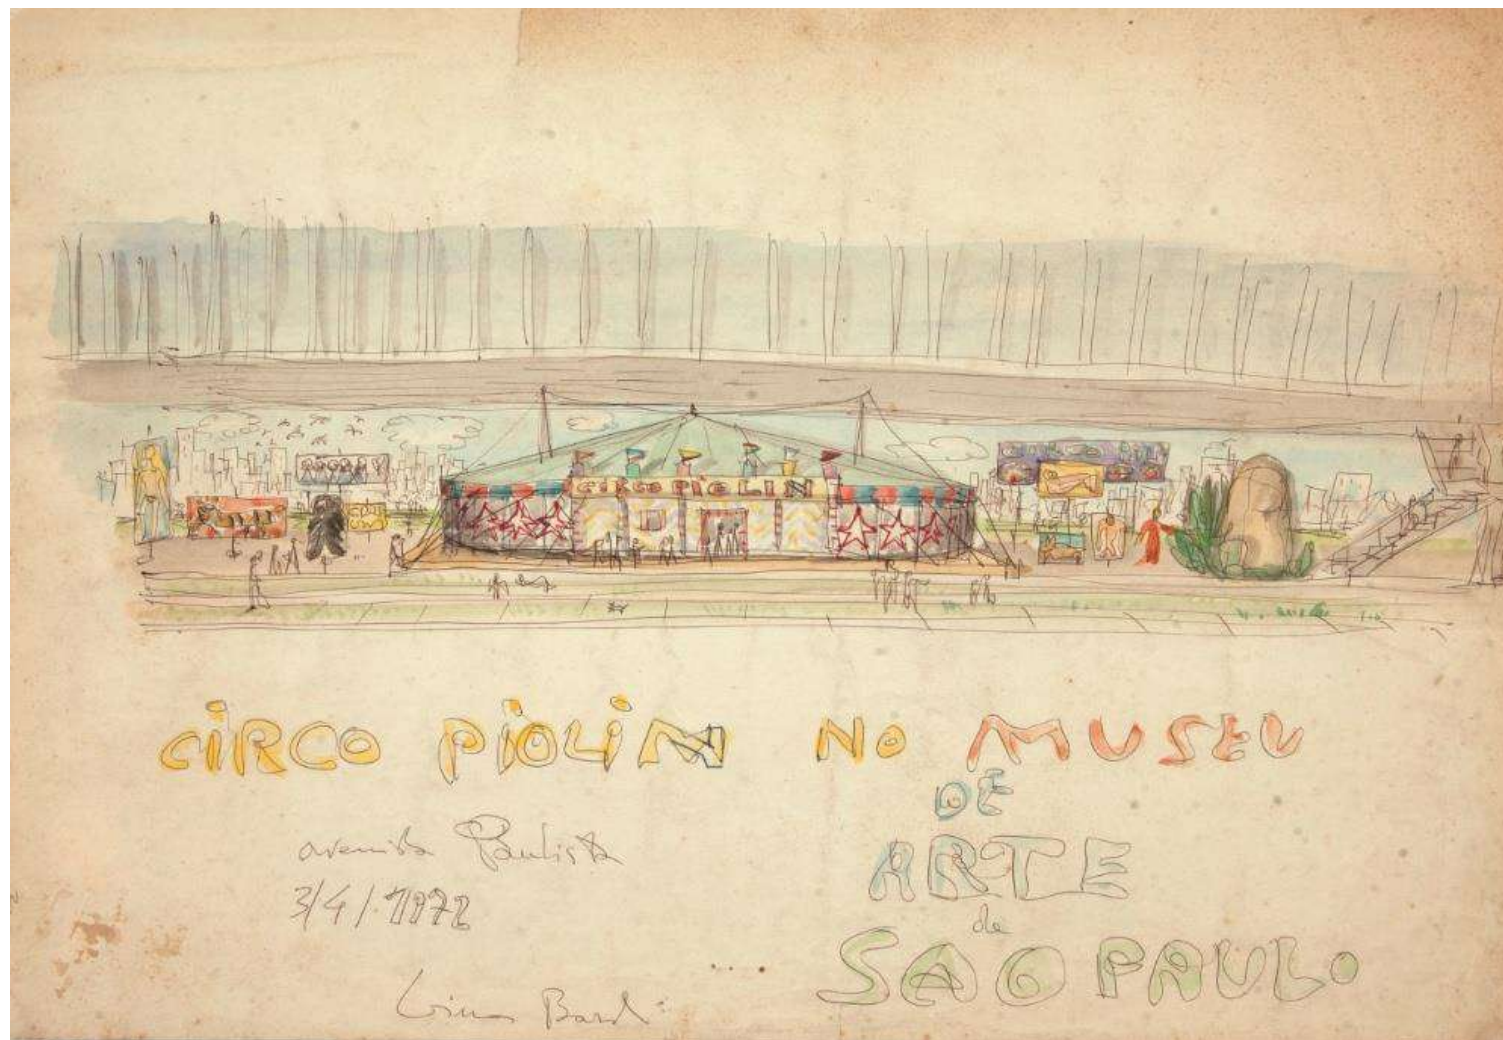 CIRCO PIOLIN
CIRCO PIOLIN NO MUSEU
DE
ARTE
de
SAO PAULO
avenida Paulista
3/4/1972
Lina Bardi